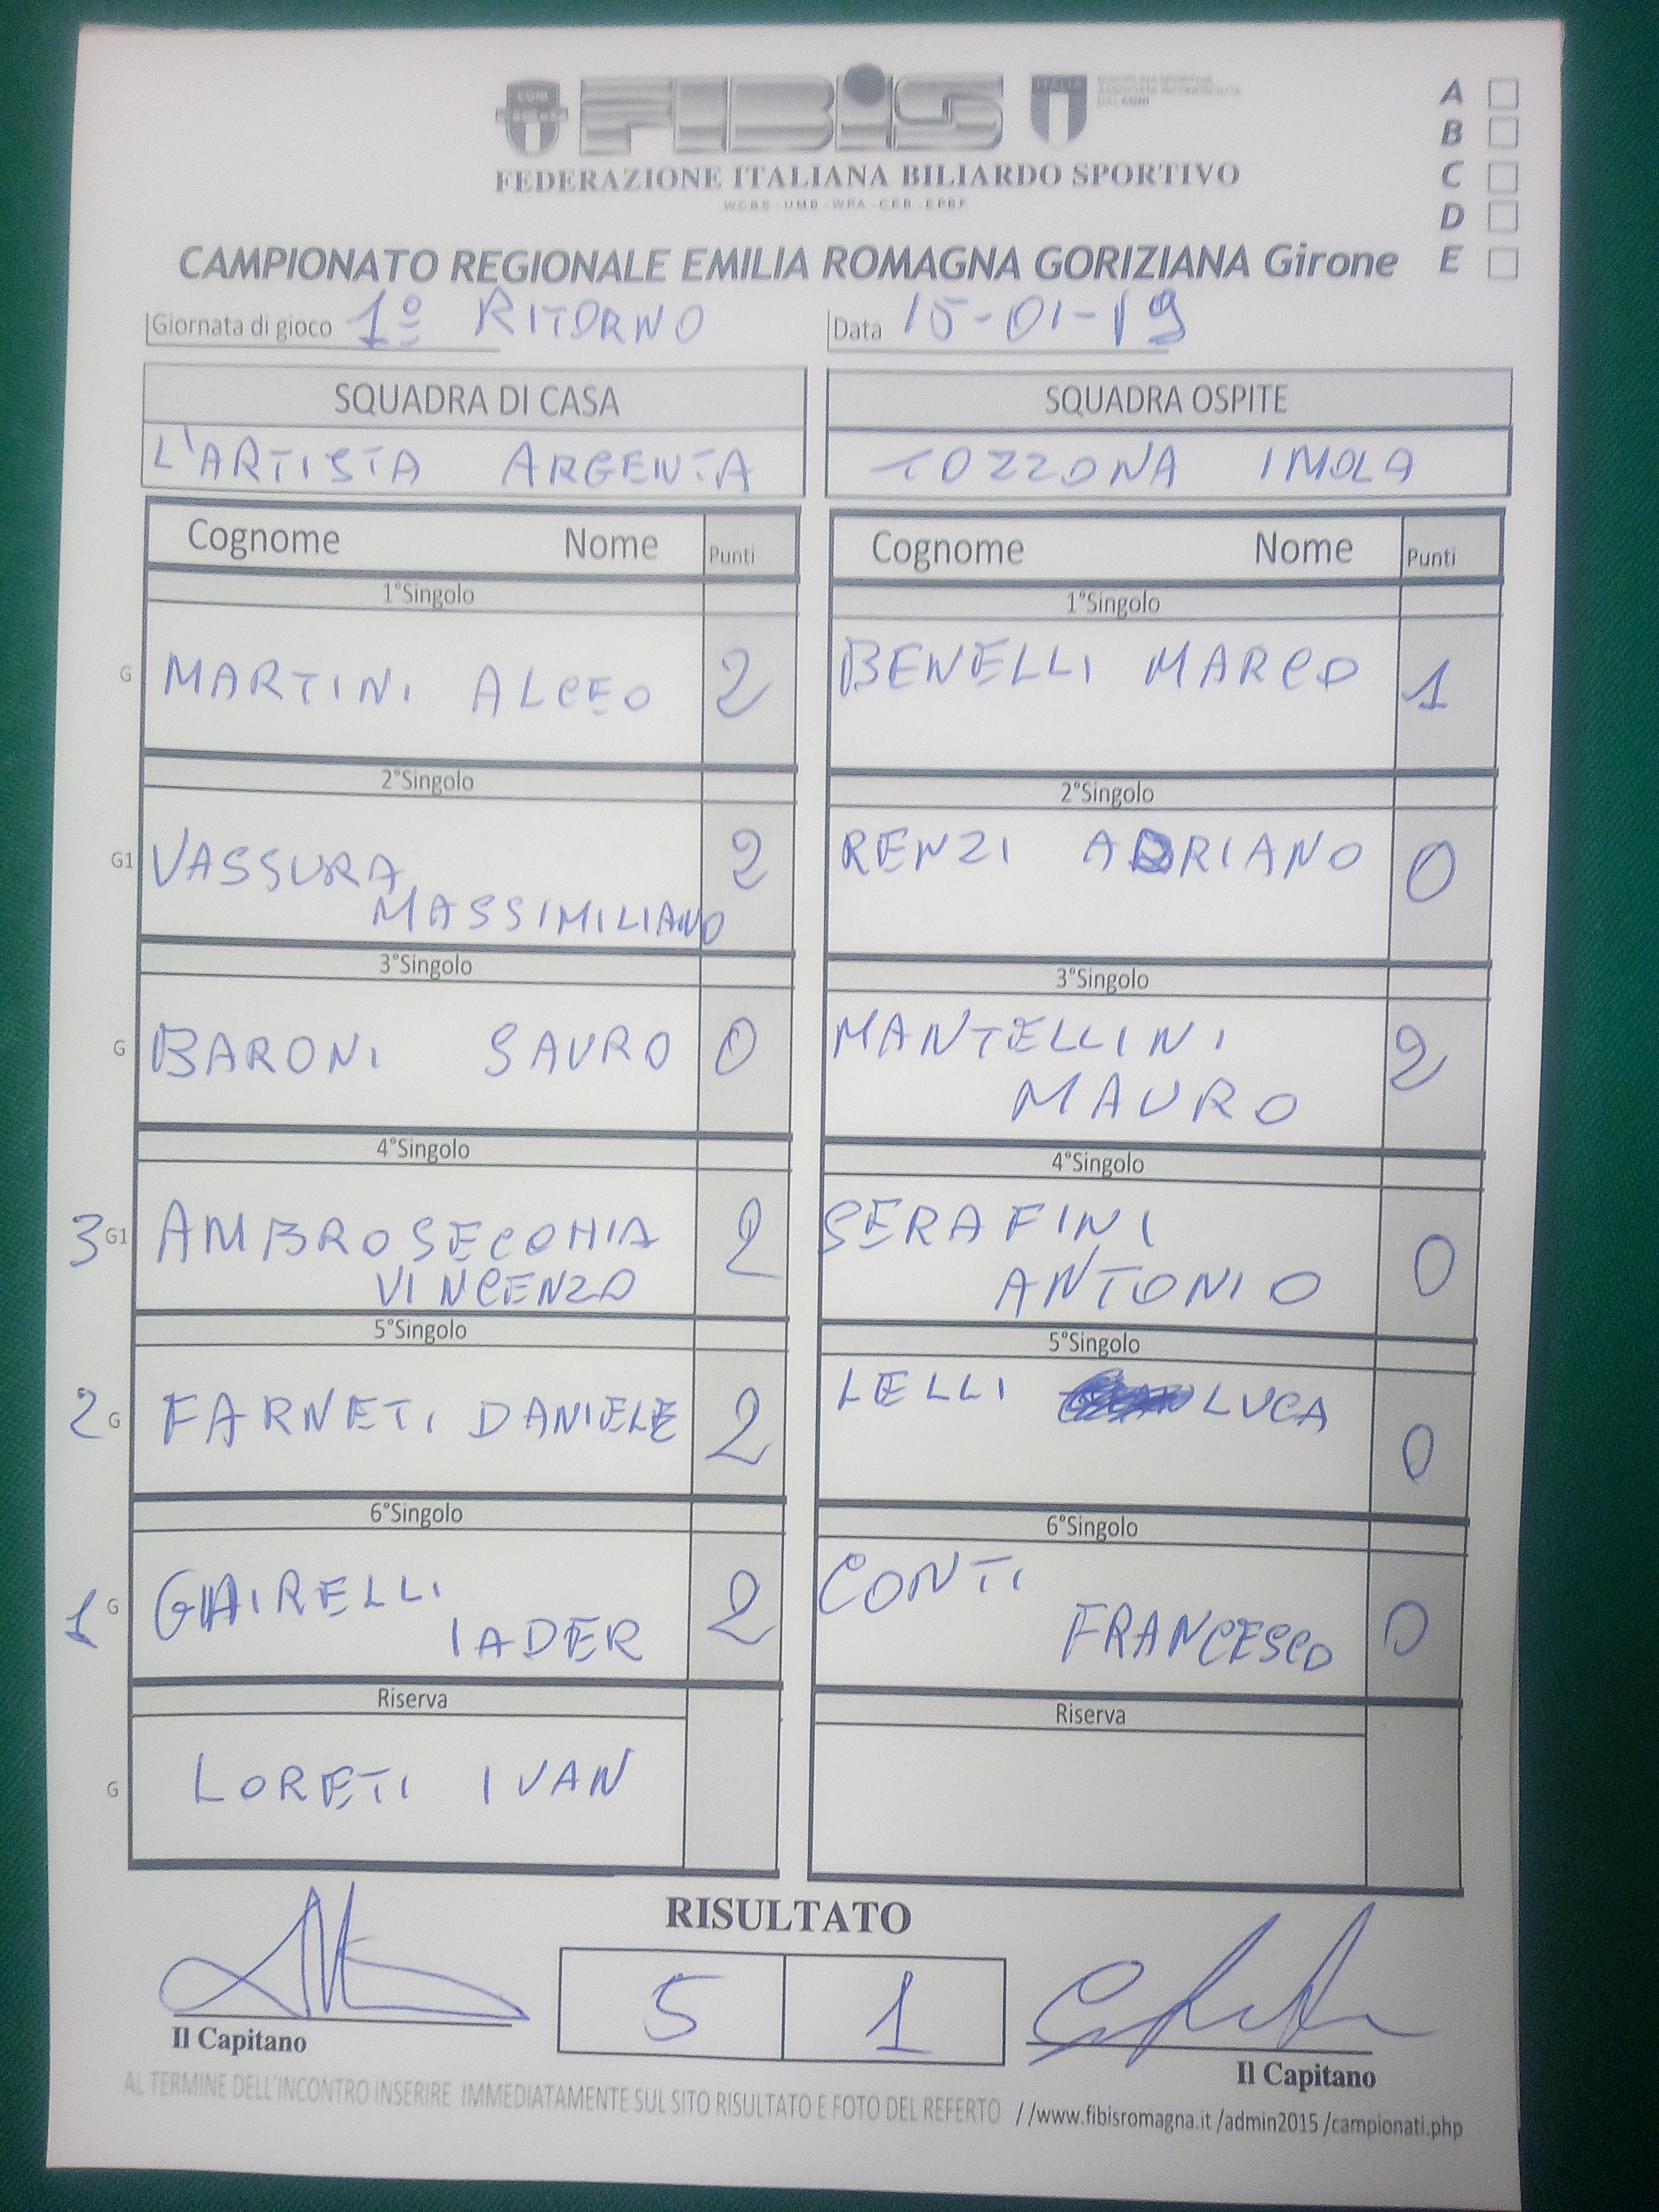 CONI
FIBIS
ITALIA
DISCIPLINA SPORTIVA
ASSOCIATA RICONOSCIUTA
DAL CONI
FEDERAZIONE ITALIANA BILIARDO SPORTIVO
WCBS - UMB - WPA - CEB - EPBF
A
B
C
D
E
CAMPIONATO REGIONALE EMILIA ROMAGNA GORIZIANA Girone
Giornata di gioco 1° RITORNO Data 15-01-19
SQUADRA DI CASA SQUADRA OSPITE
L'ARTISTA ARGENTA TOZZONA IMOLA
Cognome Nome Punti Cognome Nome Punti
1°Singolo 1°Singolo
G MARTINI ALCEO 2 BENELLI MARCO 1
2°Singolo 2°Singolo
G1 VASSURA 2 RENZI ADRIANO 0
MASSIMILIANO
3°Singolo 3°Singolo
G BARONI SAURO 0 MANTELLINI 2
MAURO
4°Singolo 4°Singolo
3 G1 AMBROSECCHIA 2 SERAFINI 0
VINCENZO ANTONIO
5°Singolo 5°Singolo
2 G FARNETI DANIELE 2 LELLI LUCA 0
6°Singolo 6°Singolo
1 G GAIRELLI 2 CONTI 0
IADER FRANCESCO
Riserva Riserva
G LORETI IVAN
RISULTATO
5 1
Il Capitano Il Capitano
AL TERMINE DELL'INCONTRO INSERIRE IMMEDIATAMENTE SUL SITO RISULTATO E FOTO DEL REFERTO //www.fibisromagna.it /admin2015 /campionati.php